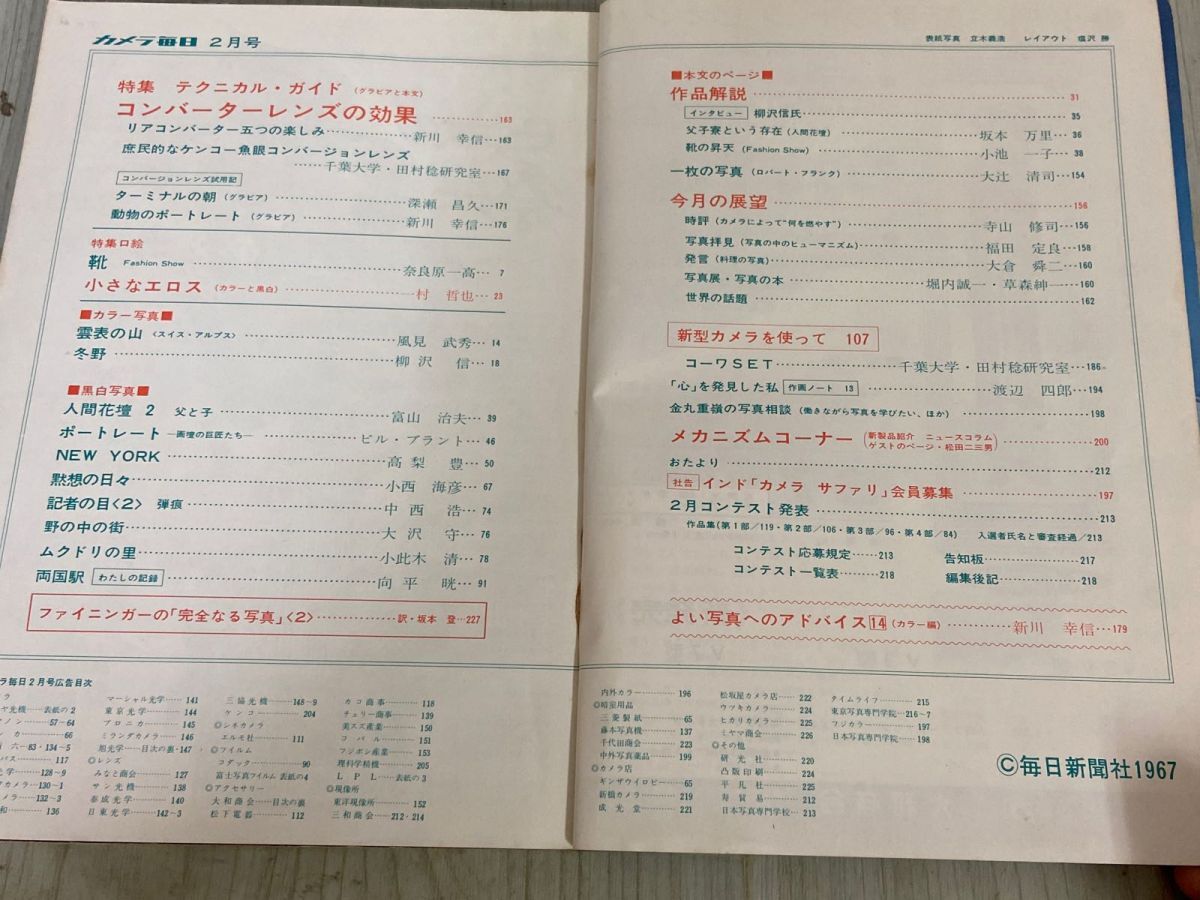 カメラ毎日 2月号
特集 テクニカル・ガイド (グラビアと本文)
コンバーターレンズの効果 163
リアコンバーター五つの楽しみ 新川 幸信 163
庶民的なケンコー魚眼コンバージョンレンズ
千葉大学・田村稔研究室 167
コンバージョンレンズ試用記
ターミナルの朝 (グラビア) 深瀬 昌久 171
動物のポートレート (グラビア) 新川 幸信 176
特集口絵
靴 Fashion Show 奈良原一高 7
小さなエロス (カラーと黒白) 一村 哲也 23
■カラー写真■
雲表の山 <スイス・アルプス> 風見 武秀 14
冬野 柳沢 信 18
■黒白写真■
人間花壇 2 父と子 富山 治夫 39
ポートレート ―画壇の巨匠たち― ビル・ブラント 46
NEW YORK 高梨 豊 50
黙想の日々 小西 海彦 67
記者の目<2> 弾痕 中西 浩 74
野の中の街 大沢 守 76
ムクドリの里 小此木 清 78
両国駅 わたしの記録 向平 晄 91
ファイニンガーの「完全なる写真」<2> 訳・坂本 登 227
ラ毎日2月号広告目次
マーシャル光学 141
東京光学 144
ブロニカ 145
ミランダカメラ 146
旭光学 目次の裏・147
◎レンズ
みなと商会 127
サン光機 138
泰成光学 140
日東光学 142〜3
三協光機 148〜9
ケンコー 204
◎シネカメラ
エルモ社 111
◎フイルム
コダック 90
富士写真フイルム 表紙の4
◎アクセサリー
大和商会 目次の裏
松下電器 112
カコ商事 118
チェリー商事 139
美スズ産業 150
コパル 151
フジボン産業 153
理科学精機 205
LPL 表紙の3
◎現像所
東洋現像所 152
三和商会 212・214
表紙写真 立木義浩 レイアウト 塩沢 勝
■本文のページ■
作品解説 31
インタビュー 柳沢信氏 35
父子寮という存在 (人間花壇) 坂本 万里 36
靴の昇天 (Fashion Show) 小池 一子 38
一枚の写真 (ロバート・フランク) 大辻 清司 154
今月の展望 156
時評 (カメラによって“何を燃やす”) 寺山 修司 156
写真拝見 (写真の中のヒューマニズム) 福田 定良 158
発言 (料理の写真) 大倉 舜二 160
写真展・写真の本 堀内誠一・草森紳一 160
世界の話題 162
新型カメラを使って 107
コーワSET 千葉大学・田村稔研究室 186
「心」を発見した私 作画ノート 13 渡辺 四郎 194
金丸重嶺の写真相談 (働きながら写真を学びたい、ほか) 198
メカニズムコーナー (新製品紹介 ニュースコラム ゲストのページ・松田二三男) 200
おたより 212
社告 インド「カメラ サファリ」会員募集 197
2月コンテスト発表 213
作品集(第1部/119・第2部/106・第3部/96・第4部/84) 入選者氏名と審査経過/213
コンテスト応募規定 213 告知板 217
コンテスト一覧表 218 編集後記 218
よい写真へのアドバイス 14 (カラー編) 新川 幸信 179
内外カラー 196
◎暗室用品
三菱製紙 65
藤本写真機 137
千代田商会 223
中外写真薬品 199
◎カメラ店
ギンザウイロビー 65
新橋カメラ 219
成光堂 221
松坂屋カメラ店 222
ウツキカメラ 224
ヒカリカメラ 225
ミヤマ商会 226
◎その他
研光社 220
凸版印刷 224
平凡社 225
寿貿易 212
日本写真専門学校 213
タイムライフ 215
東京写真専門学院 216〜7
フジカラー 197
日本写真専門学院 198
©毎日新聞社1967